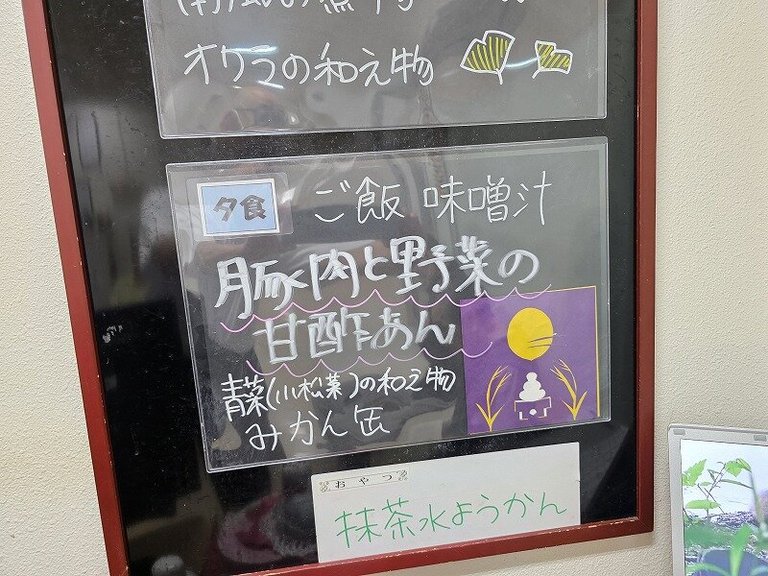 オクラの和え物
夕食
ご飯 味噌汁
豚肉と野菜の
甘酢あん
青菜(小松菜)の和え物
みかん缶
おやつ
抹茶水ようかん